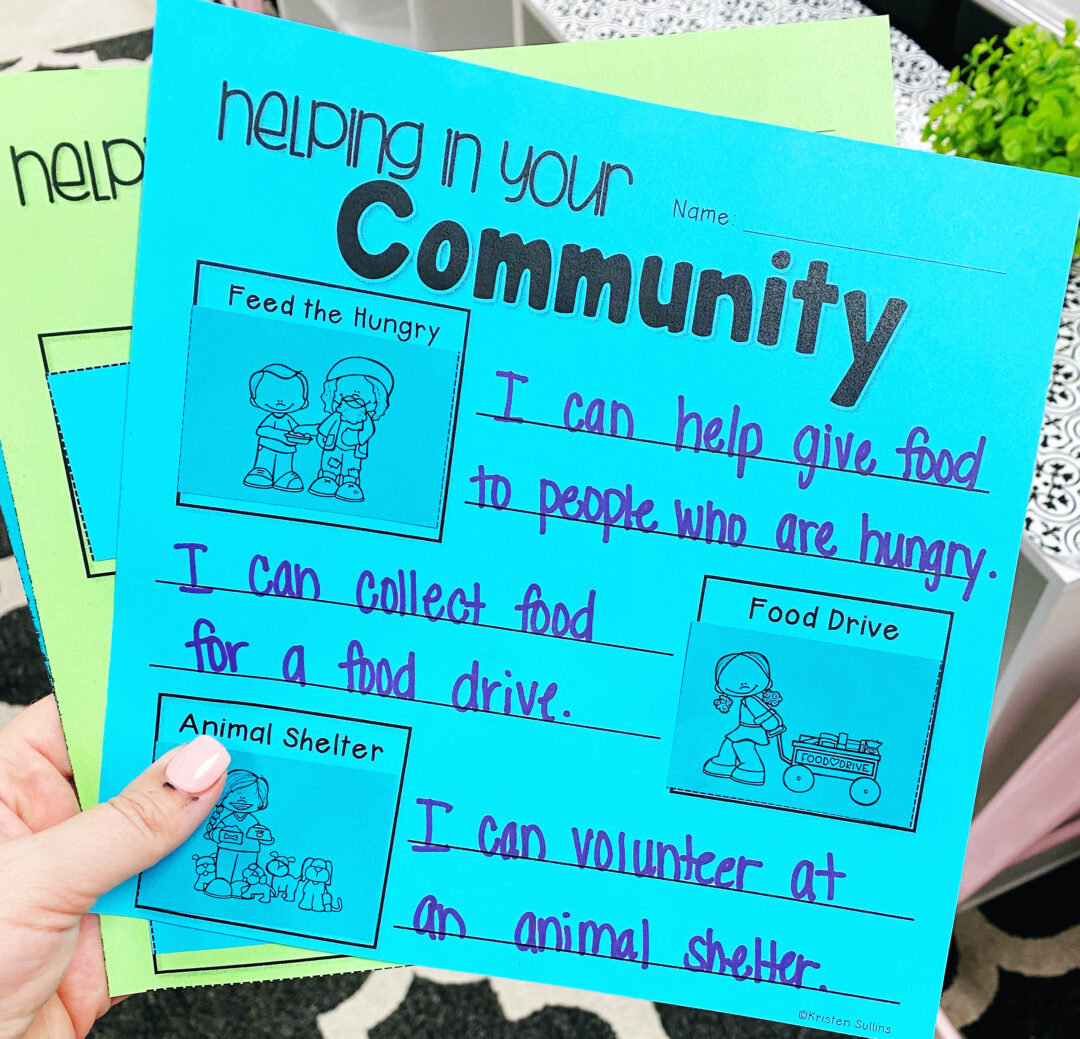 helping in your
Community
Name:
Feed the Hungry
I can help give food
to people who are hungry.
I can collect food
for a food drive.
Food Drive
FOOD♡DRIVE
Animal Shelter
I can volunteer at
an animal shelter.
©Kristen Sullins
help